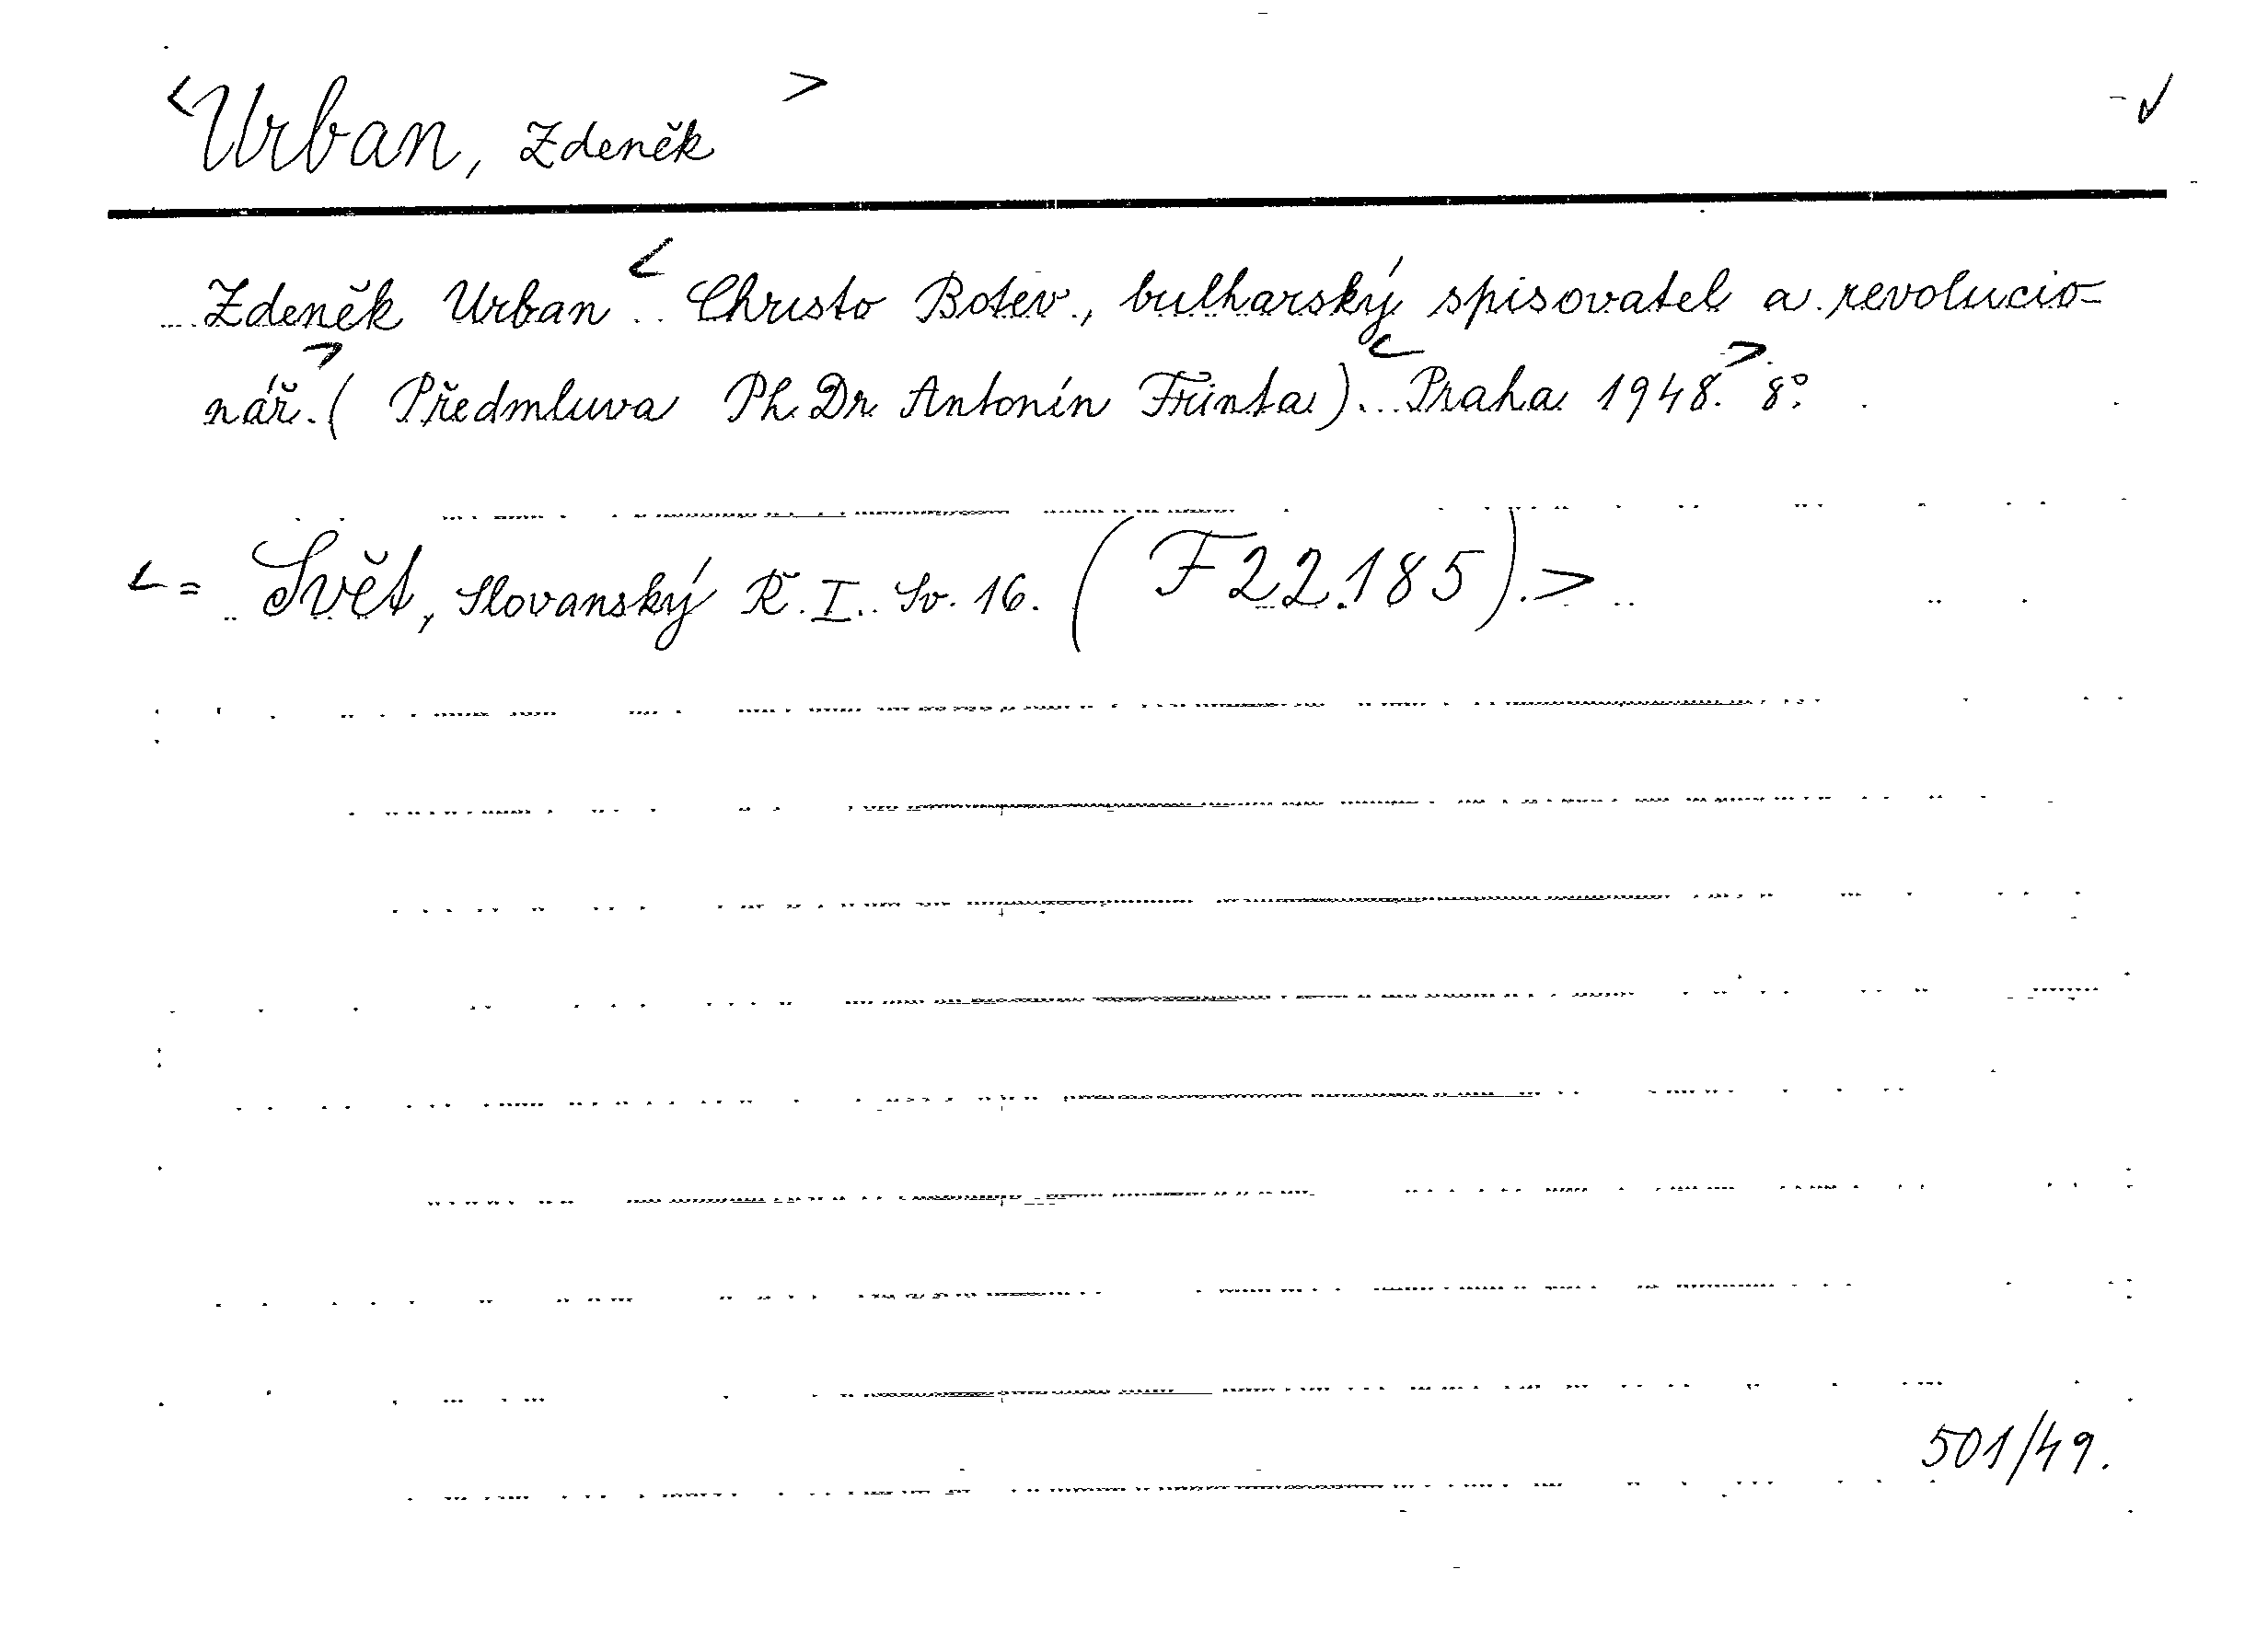 <Urban, Zdeněk> ✓
Zdeněk Urban. <Christo Botev, bulharský spisovatel a revolucio-
nář.> (Předmluva Ph. Dr. Antonín Frinta). <Praha 1948.> 8°.
<= Svět, Slovanský Ř. I. Sv. 16. (F 22.185).>
501/49.